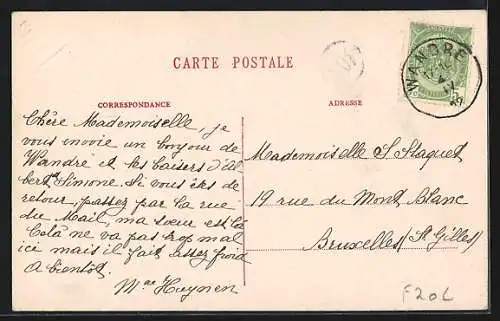 CARTE POSTALE
WANDRE
CORRESPONDANCE
Chère Mademoiselle, je
vous envoie un bonjour de
Wandre et les baisers d'Al
bert Simone. Si vous êtes de
retour, passez par la rue
du Mail, ma sœur est là
Celà ne va pas trop mal
ici mais il fait assez froid
A bientôt.
Mme Huynen
ADRESSE
Mademoiselle S Staquet
19 rue du Mont Blanc
Bruxelles (St Gilles)
F20L